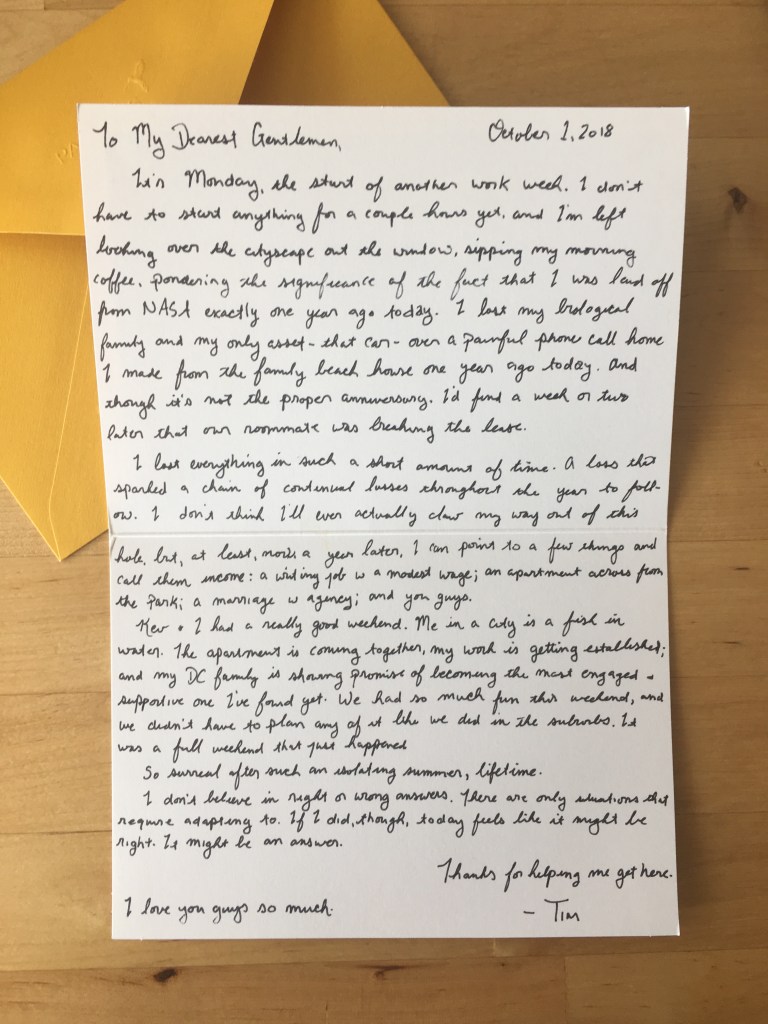 To My Dearest Gentlemen,
October 1, 2018
It's Monday, the start of another work week. I don't
have to start anything for a couple hours yet, and I'm left
looking over the cityscape out the window, sipping my morning
coffee, pondering the significance of the fact that I was laid off
from NASA exactly one year ago today. I lost my biological
family and my only asset - that car - over a painful phone call home
I made from the family beach house one year ago today. And
though it's not the proper anniversary, I'd find a week or two
later that our roommate was breaking the lease.
I lost everything in such a short amount of time. A loss that
sparked a chain of continual losses throughout the year to foll-
ow. I don't think I'll ever actually claw my way out of this
hole, but, at least, now a year later, I can point to a few things and
call them income: a writing job w a modest wage; an apartment across from
the Park; a marriage w agency; and you guys.
Kev + I had a really good weekend. Me in a city is a fish in
water. The apartment is coming together, my work is getting established;
and my DC family is showing promise of becoming the most engaged +
supportive one I've found yet. We had so much fun this weekend, and
we didn't have to plan any of it like we did in the suburbs. It
was a full weekend that just happened
So surreal after such an isolating summer, lifetime.
I don't believe in right or wrong answers. There are only situations that
require adapting to. If I did, though, today feels like it might be
right. It might be an answer.
Thanks for helping me get here.
I love you guys so much.
- Tim